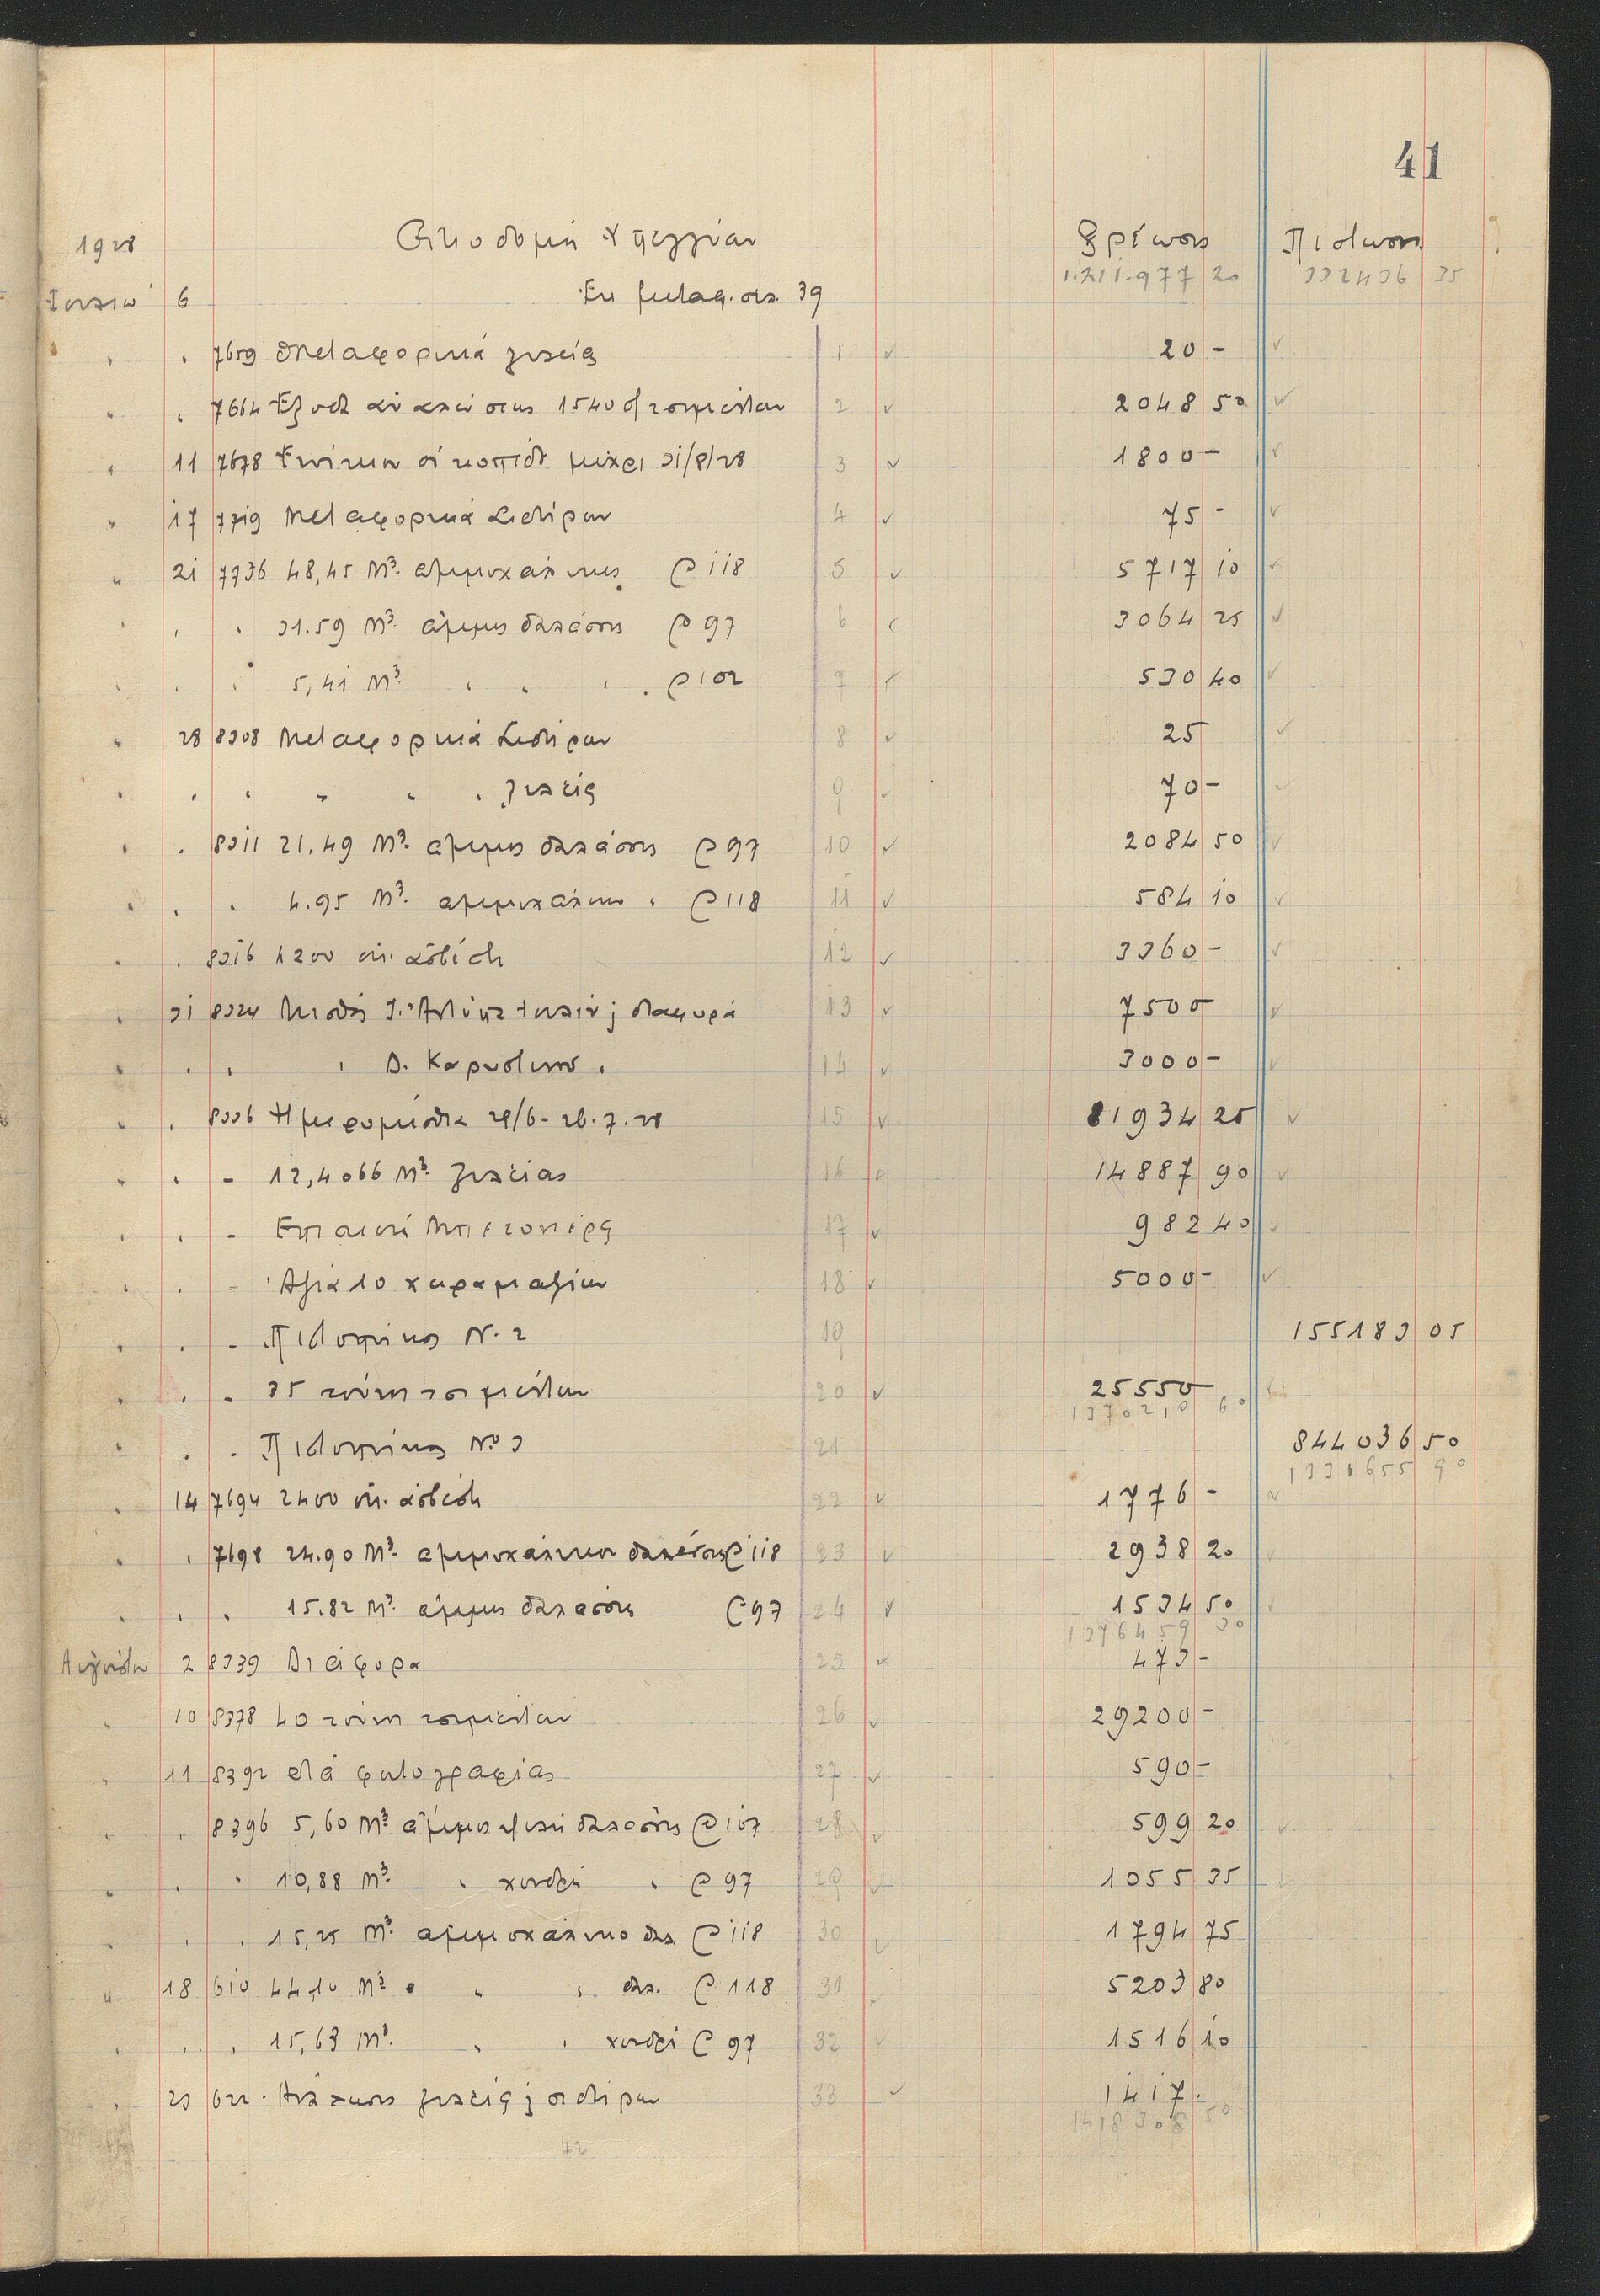 41
1928 Οικοδομή Χρέωσις Πίστωσις
1.211.977 20 332436 35
Ιουλίου 6 Εκ μεταφ. σελ. 39
" " 7659 Μεταφορικά ξυλείας 1 20 -
" " 7664 Έξοδα 1540 τσιμέντων 2 2048 50
" 11 7678 Ενοίκιον οικοπέδ μέχρι 31/8/28 3 1800 -
" 17 7719 Μεταφορικά Σιδήρων 4 75 -
" 21 7736 48,45 M³. αμμοχάλικος @ 118 5 5717 10
" " " 31.59 M³. άμμος θαλάσσης @ 97 6 3064 25
" " " 5,41 M³. " " " " @ 102 7 530 40
" 28 8308 Μεταφορικά Σιδήρων 8 25
" " " " " " ξυλείας 9 70 -
" " 8311 21.49 M³. άμμος θαλάσσης @ 97 10 2084 50
" " " 4.95 M³. αμμοχάλικο " @ 118 11 584 10
" " 8316 4200 οκ. ασβέστη 12 3360 -
" 31 8324 Μισθός Ιουλίου διαφορά 13 7500
" " " " Δ. Καρυστινού " 14 3000 -
" " 8336 Ημερομίσθια 29/6 - 26.7.28 15 81934 25
" " - 12,4066 M³. ξυλείας 16 14887 90
" " - 17 982 40
" " - Αξία 10 18 5000 -
" " - Πιστοποίησις Ν. 2 19 155183 05
" " - 35 τόννοι τσιμέντων 20 25550
1370210 60
" " " Πιστοποίησις Νο 3 21 844036 50
1331655 90
" 14 7694 2400 οκ. ασβέστη 22 1776 -
" " 7698 24.90 M³. αμμοχάλικον θαλάσσης @ 118 23 2938 20
" " " 15.82 M³. άμμος θαλάσσης @ 97 24 1534 50
1376459 30
Αυγούστου 2 8339 Διάφορα 25 473 -
" 10 8378 40 τόννοι τσιμέντων 26 29200 -
" 11 8392 διά φωτογραφίας 27 590 -
" " 8396 5,60 M³. άμμος ψιλή θαλάσσης @ 107 28 599 20
" " " 10,88 M³. " χονδρή " @ 97 29 1055 35
" " " 15,25 M³. αμμοχάλικο θαλ @ 118 30 1794 75
" 18 610 44.10 M³. " " " θαλ. @ 118 31 5203 80
" " " 15,63 M³. " " χονδρή @ 97 32 1516 10
" 23 622 ξυλείας σιδήρων 33 1417 -
1418308 50
42